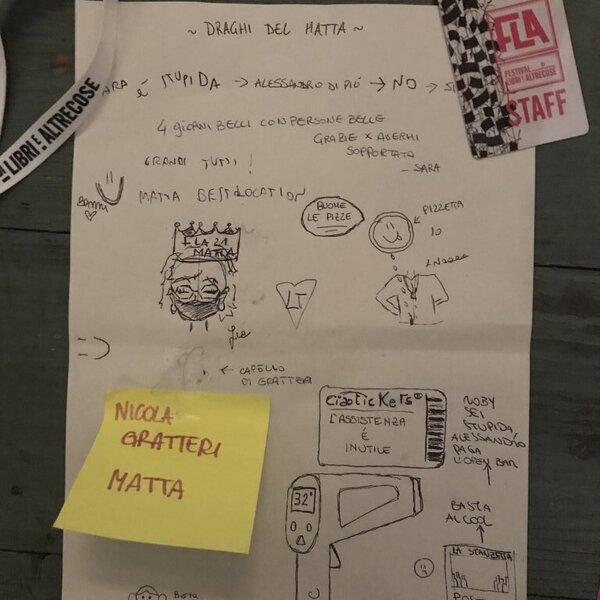 ~ DRAGHI DEL MATTA ~
FLA
FESTIVAL
DI LIBRI E ALTRECOSE
STAFF
DI LIBRI E ALTRECOSE
ARA È STUPIDA → ALESSANDRO DI PIÚ → NO →
4 GIORNI BELLI CON PERSONE BELLE
GRAZIE X AVERMI
SOPPORTATA
- SARA
GRANDI TUTTI!
MATTA BEST LOCATION
BUONE
LE PIZZE
PIZZETTA
IO
FLA 21
MATTA
LT
← CAPELLO
DI GRATTERI
NICOLA
GRATTERI
MATTA
CiaoTicKets®
L'ASSISTENZA
É
INUTILE
NOBY
SEI
STUPIDA,
ALESSANDRO
PAGA
L'OPEN BAR
32°
BASTA
ALCOOL
LA STANZETTA